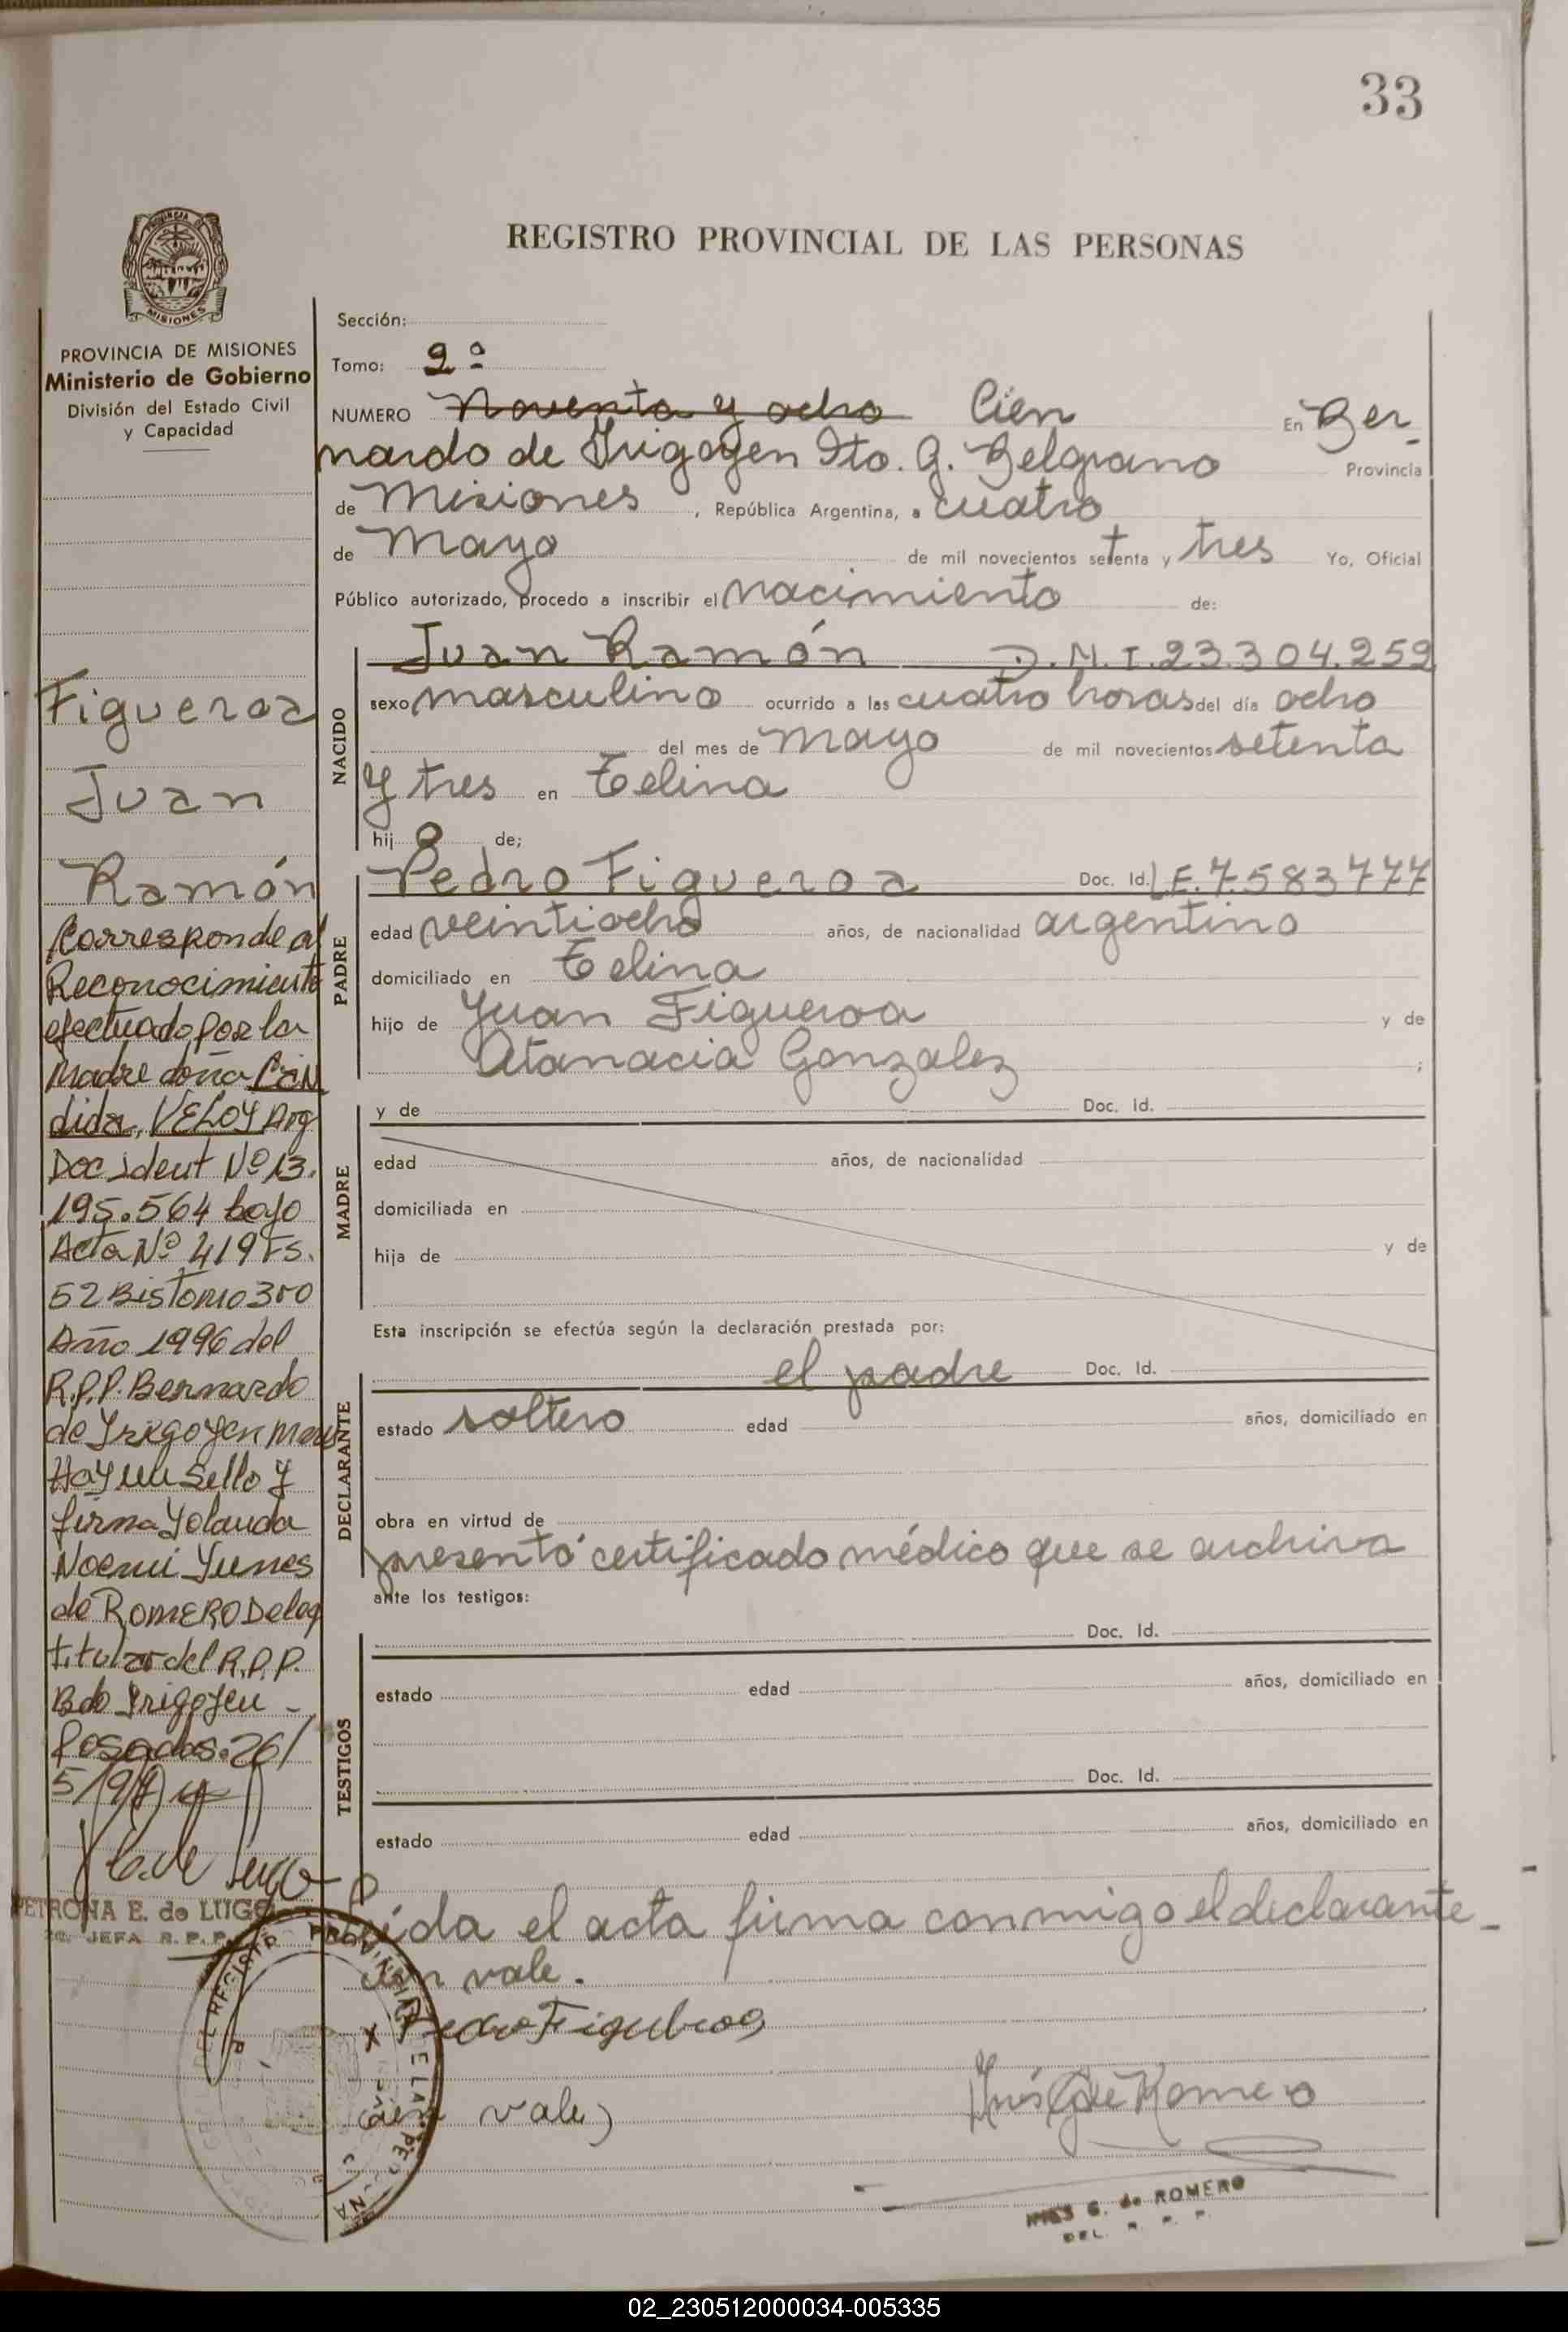 33
REGISTRO PROVINCIAL DE LAS PERSONAS
PROVINCIA DE MISIONES
PROVINCIA DE MISIONES
Ministerio de Gobierno
División del Estado Civil
y Capacidad
Figueroa
Juan
Ramón
Corresponde al
Reconocimiento
efectuado por la
Madre doña Cán
dida, VELOY Arg
Doc ident Nº 13.
195.564 bajo
Acta Nº 419 Fs.
52 Bis Tomo 3ro
Año 1996 del
R.P.P. Bernardo
de Yrigoyen
Hay un Sello y
firma Yolanda
Noemi Yunes
de ROMERO Deleg
titular del R.P.P.
Bdo Yrigoyen -
Posadas. 26/
5/97
PETRONA E. de LUGO
JEFA R.P.P.
Sección:
Tomo: 2º
NUMERO Noventa y ocho Cien En Ber_
nardo de Irigoyen Dto. G. Belgrano Provincia
de Misiones , República Argentina, a cuatro
de Mayo de mil novecientos setenta y tres Yo, Oficial
Público autorizado, procedo a inscribir el nacimiento de:
NACIDO
Juan Ramón D.N.I. 23.304.259
sexo masculino ocurrido a las cuatro horas del día ocho
del mes de Mayo de mil novecientos setenta
y tres en Telina
hij o de;
PADRE
Pedro Figueroa Doc. Id. L.E. 7.583777
edad veintiocho años, de nacionalidad argentino
domiciliado en Telina
hijo de Juan Figueroa y de
Atanacia Gonzalez ;
MADRE
y de Doc. Id.
edad años, de nacionalidad
domiciliada en
hija de y de
Esta inscripción se efectúa según la declaración prestada por:
DECLARANTE
el padre Doc. Id.
estado soltero edad años, domiciliado en
obra en virtud de
presentó certificado médico que se archiva
ante los testigos:
TESTIGOS
Doc. Id.
estado edad años, domiciliado en
Doc. Id.
estado edad años, domiciliado en
Leída el acta firma conmigo el declarante_
cien vale.
x Pedro Figueroa
cien vale)
Inés G de Romero
INES G. de ROMERO
DEL. R. P. P.
02_230512000034-005335